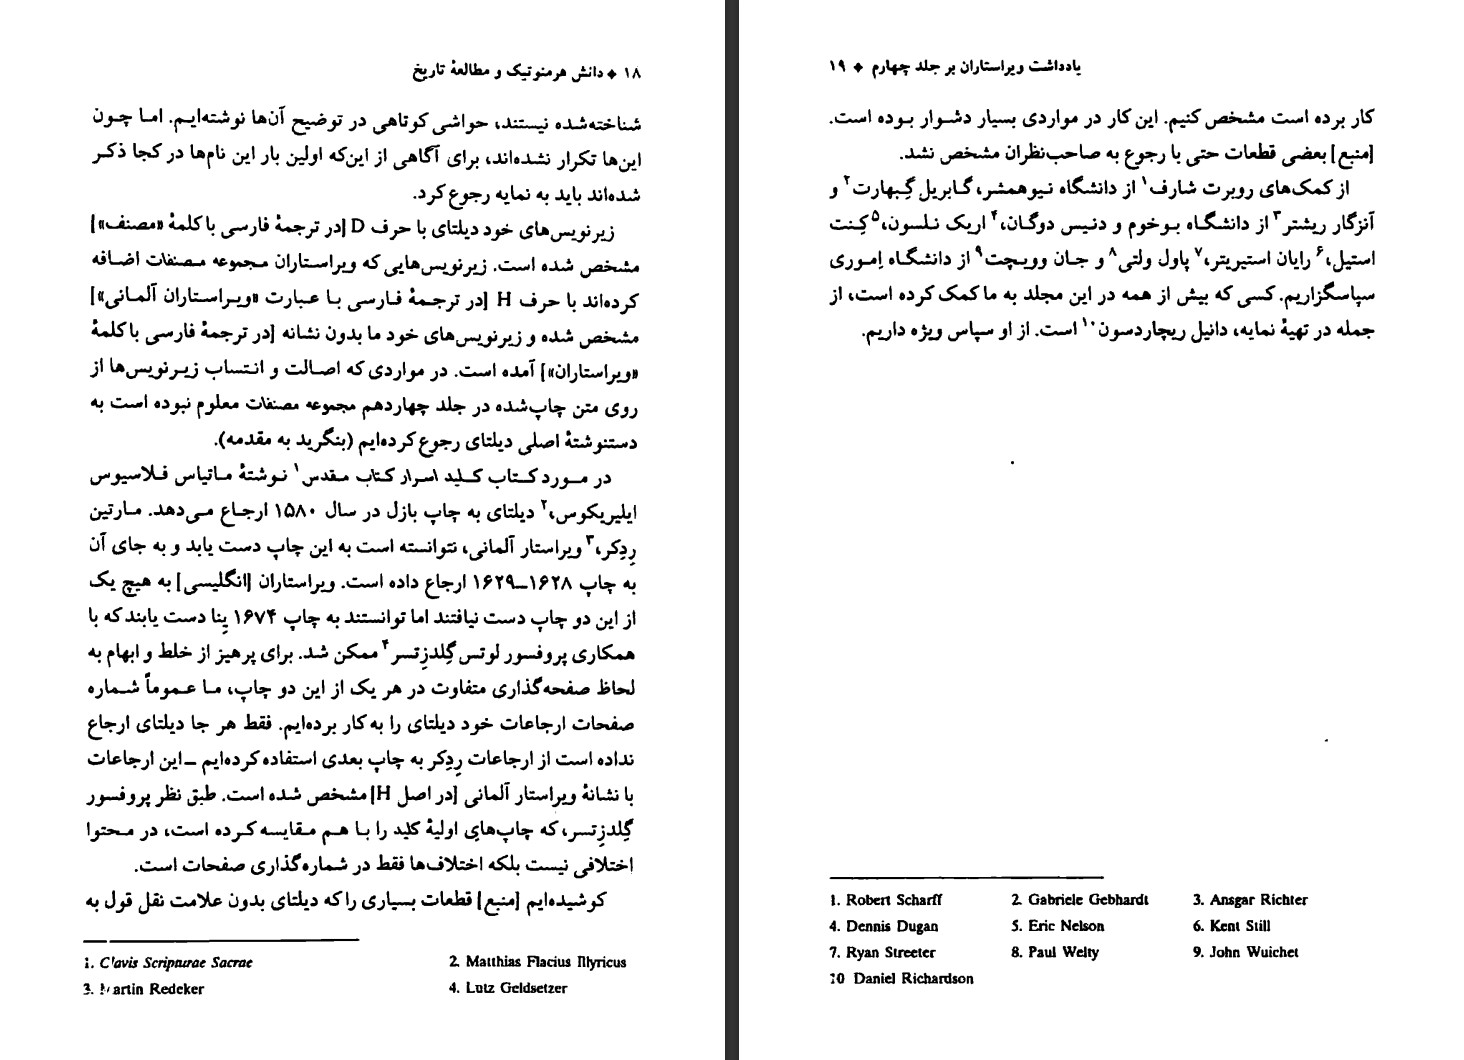 ۱۸ ♦ دانش هرمنوتیک و مطالعهٔ تاریخ
شناخته‌شده نیستند، حواشی کوتاهی در توضیح آن‌ها نوشته‌ایم. اما چون
این‌ها تکرار نشده‌اند، برای آگاهی از این‌که اولین بار این نام‌ها در کجا ذکر
شده‌اند باید به نمایه رجوع کرد.
زیرنویس‌های خود دیلتای با حرف D [در ترجمهٔ فارسی با کلمهٔ «مصنف»]
مشخص شده است. زیرنویس‌هایی که ویراستاران مجموعه مصنفات اضافه
کرده‌اند با حرف H [در ترجمهٔ فارسی با عبارت «ویراستاران آلمانی»]
مشخص شده و زیرنویس‌های خود ما بدون نشانه [در ترجمهٔ فارسی با کلمهٔ
«ویراستاران»] آمده است. در مواردی که اصالت و انتساب زیرنویس‌ها از
روی متن چاپ‌شده در جلد چهاردهم مجموعه مصنفات معلوم نبوده است به
دستنوشتهٔ اصلی دیلتای رجوع کرده‌ایم (بنگرید به مقدمه).
در مورد کتاب کلید اسرار کتاب مقدس۱ نوشتهٔ ماتیاس فلاسیوس
ایلیریکوس،۲ دیلتای به چاپ بازل در سال ۱۵۸۰ ارجاع می‌دهد. مارتین
رِدِکر،۳ ویراستار آلمانی، نتوانسته است به این چاپ دست یابد و به جای آن
به چاپ ۱۶۲۸ــ۱۶۲۹ ارجاع داده است. ویراستاران [انگلیسی] به هیچ یک
از این دو چاپ دست نیافتند اما توانستند به چاپ ۱۶۷۴ یِنا دست یابند که با
همکاری پروفسور لوتس گِلدزِتسر۴ ممکن شد. برای پرهیز از خلط و ابهام به
لحاظ صفحه‌گذاری متفاوت در هر یک از این دو چاپ، ما عموماً شماره
صفحات ارجاعات خود دیلتای را به کار برده‌ایم. فقط هر جا دیلتای ارجاع
نداده است از ارجاعات رِدِکر به چاپ بعدی استفاده کرده‌ایم ــ این ارجاعات
با نشانهٔ ویراستار آلمانی [در اصل H] مشخص شده است. طبق نظر پروفسور
گِلدزِتسر، که چاپ‌هایِ اولیهٔ کلید را با هم مقایسه کرده است، در محتوا
اختلافی نیست بلکه اختلاف‌ها فقط در شماره‌گذاری صفحات است.
کوشیده‌ایم [منبع] قطعات بسیاری را که دیلتای بدون علامت نقل قول به
1. Clavis Scripturae Sacrae 2. Matthias Flacius Illyricus
3. Martin Redeker 4. Lutz Geldsetzer
یادداشت ویراستاران بر جلد چهارم ♦ ۱۹
کار برده است مشخص کنیم. این کار در مواردی بسیار دشوار بوده است.
[منبع] بعضی قطعات حتی با رجوع به صاحب‌نظران مشخص نشد.
از کمک‌های روبرت شارف۱ از دانشگاه نیوهمشر، گابریل گِبهارت۲ و
آنزگار ریشتر۳ از دانشگاه بوخوم و دنیس دوگان،۴ اریک نلسون،۵ کِنت
استیل،۶ رایان استیریتر،۷ پاول ولتی۸ و جان وویچت۹ از دانشگاه اِموری
سپاسگزاریم. کسی که بیش از همه در این مجلد به ما کمک کرده است، از
جمله در تهیهٔ نمایه، دانیل ریچاردسون۱۰ است. از او سپاس ویژه داریم.
1. Robert Scharff 2. Gabriele Gebhardt 3. Ansgar Richter
4. Dennis Dugan 5. Eric Nelson 6. Kent Still
7. Ryan Streeter 8. Paul Welty 9. John Wuichet
10 Daniel Richardson